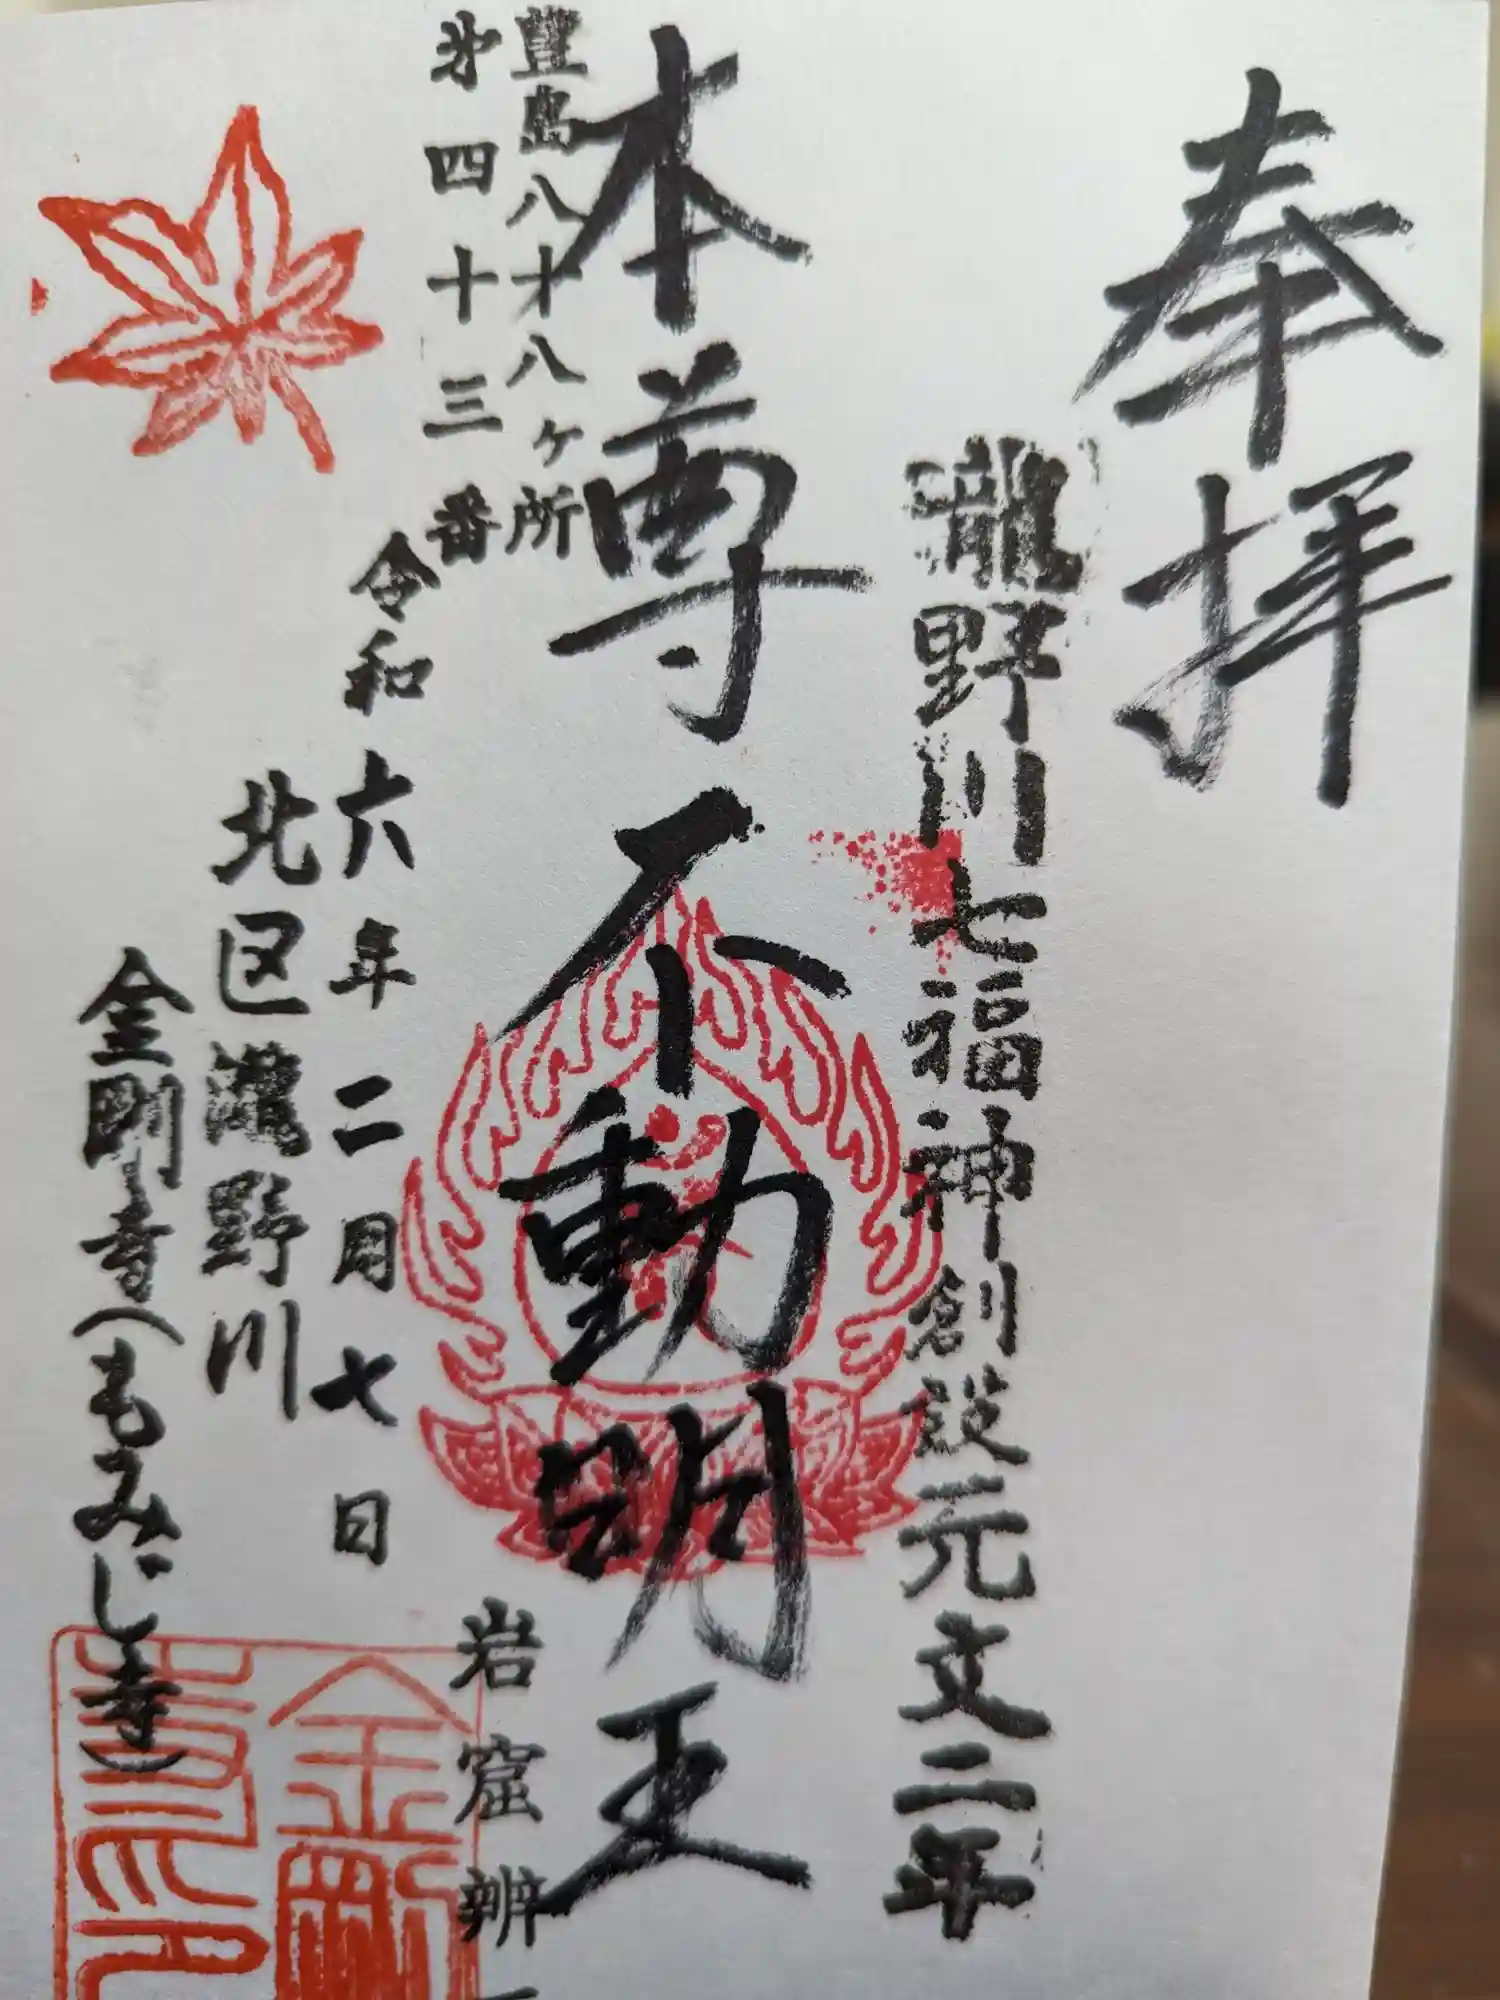 奉拝
瀧野川七福神創設元文二年
本尊不動明王
豊島八才八ヶ所
岩窟辨
第四十三番
令和六年二月七日
北区瀧野川
金剛寺(もみじ寺)